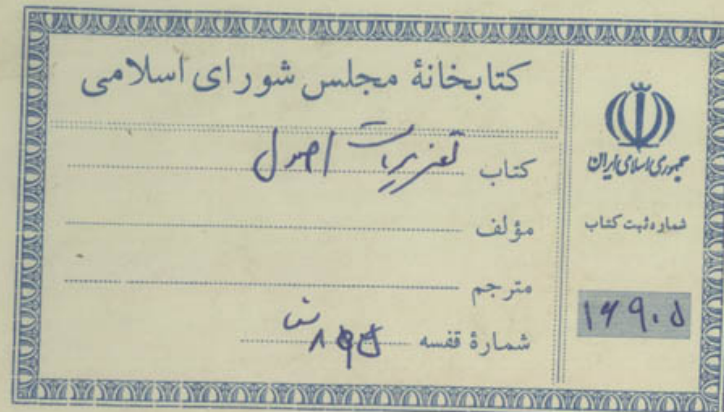 کتابخانهٔ مجلس شورای اسلامی
کتاب تقریرات اصول
مؤلف
مترجم
شمارهٔ قفسه
جمهوری اسلامی ایران
شماره ثبت کتاب